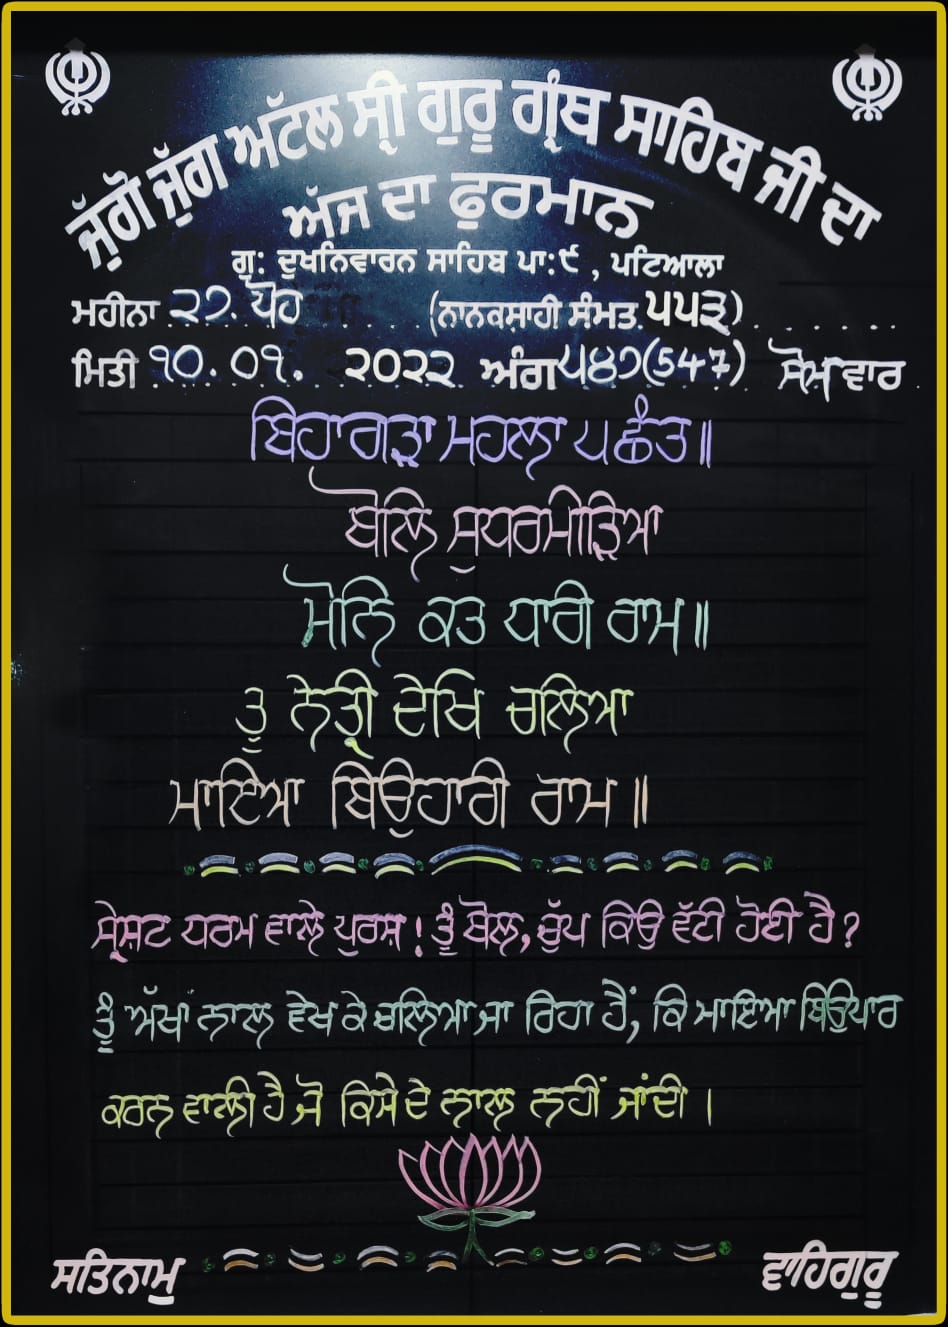 ਜੁੱਗੋ ਜੁੱਗ ਅਟੱਲ ਸ੍ਰੀ ਗੁਰੂ ਗ੍ਰੰਥ ਸਾਹਿਬ ਜੀ ਦਾ
ਅੱਜ ਦਾ ਫੁਰਮਾਨ
ਗੁ: ਦੁਖਨਿਵਾਰਨ ਸਾਹਿਬ ਪਾ:੯ , ਪਟਿਆਲਾ
ਮਹੀਨਾ ੨੭. ਪੋਹ (ਨਾਨਕਸ਼ਾਹੀ ਸੰਮਤ ੫੫੩)
ਮਿਤੀ ੧੦. ੦੧. ੨੦੨੨ ਅੰਗ ੫੪੭(547) ਸੋਮਵਾਰ
ਬਿਹਾਗੜਾ ਮਹਲਾ ੫ ਛੰਤ॥
ਬੋਲਿ ਸੁਧਰਮੀੜਿਆ
ਮੋਨਿ ਕਤ ਧਾਰੀ ਰਾਮ॥
ਤੂ ਨੇਤ੍ਰੀ ਦੇਖਿ ਚਲਿਆ
ਮਾਇਆ ਬਿਉਹਾਰੀ ਰਾਮ॥
ਸ੍ਰੇਸ਼ਟ ਧਰਮ ਵਾਲੇ ਪੁਰਸ਼! ਤੂੰ ਬੋਲ, ਚੁੱਪ ਕਿਉਂ ਵੱਟੀ ਹੋਈ ਹੈ?
ਤੂੰ ਅੱਖਾਂ ਨਾਲ ਵੇਖ ਕੇ ਚਲਿਆ ਜਾ ਰਿਹਾ ਹੈਂ, ਕਿ ਮਾਇਆ ਬਿਉਪਾਰ
ਕਰਨ ਵਾਲੀ ਹੈ ਜੋ ਕਿਸੇ ਦੇ ਨਾਲ ਨਹੀਂ ਜਾਂਦੀ।
ਸਤਿਨਾਮੁ ਵਾਹਿਗੁਰੂ